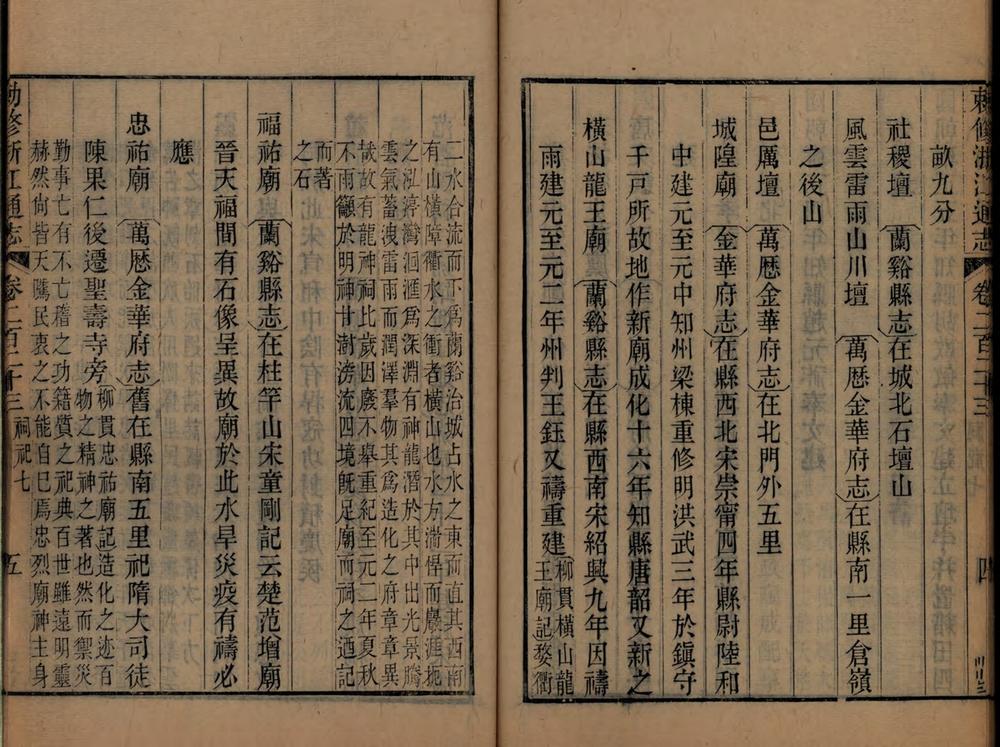 敕修浙江通志 卷二百二十三
四
畝九分
社稷壇蘭谿縣志在城北石壇山
風雲雷雨山川壇萬歷金華府志在縣南一里倉嶺
之後山
邑厲壇萬歷金華府志在北門外五里
城隍廟金華府志在縣西北宋崇甯四年縣尉陸和
中建元至元中知州梁棟重修明洪武三年於鎮守
千戸所故地作新廟成化十六年知縣唐韶又新之
橫山龍王廟蘭谿縣志在縣西南宋紹興九年因禱
雨建元至元二年州判王鈺又禱重建柳貫橫山龍
王廟記婺衢
二水合流而下爲蘭谿治城占水之東而直其西南
有山橫障衢水之衝者橫山也水方湍悍而巖涯扼
之泓渟灣洄滙爲深淵有神龍潛於其中出光景騰
雲氣蓄洩雷雨而潤澤羣物其爲造化之府章章異
哉故有龍神祠比歲因廢不舉重紀至元二年夏秋
不雨籲於明神甘澍滂流四境旣足廟而祠之迺記
而著
之石
福祐廟蘭谿縣志在柱竿山宋童剛記云楚范增廟
晉天福間有石像呈異故廟於此水旱災疫有禱必
應
忠祐廟萬歷金華府志舊在縣南五里祀隋大司徒
陳果仁後遷聖壽寺旁柳貫忠祐廟記造化之迹百
物之精神之著也然而禦災
勤事亡有不亡稽之功籍質之祀典百世雖遠明靈
赫然尙皆天騭民衷之不能自已焉忠烈廟神主身
敕修浙江通志 卷二百二十三 祠祀七
五